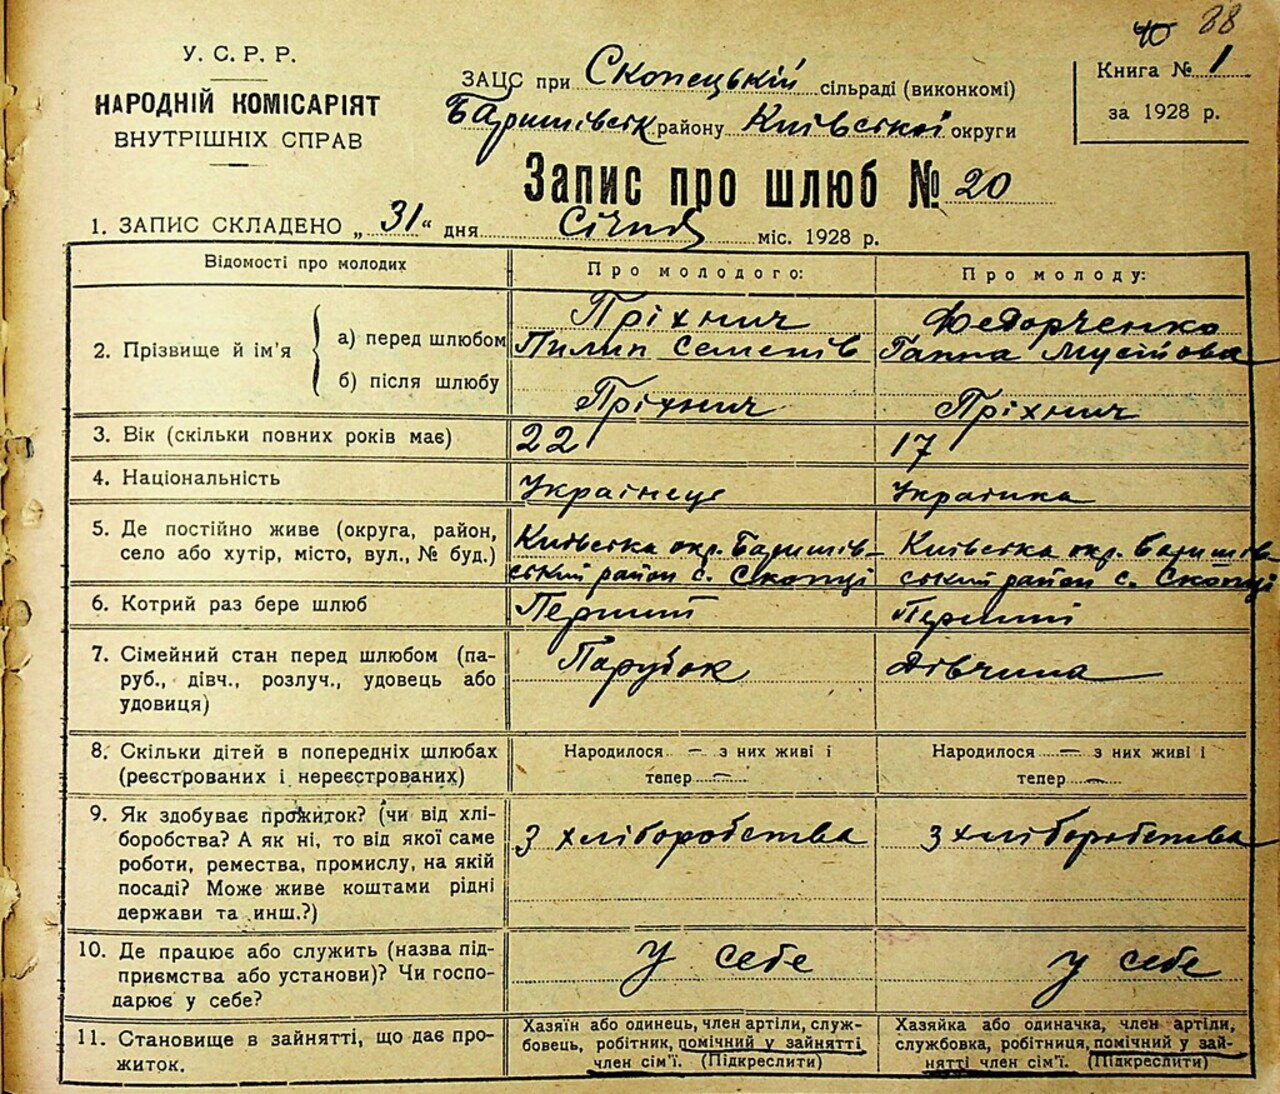 88
У. С. Р. Р.
НАРОДНІЙ КОМІСАРІЯТ
ВНУТРІШНІХ СПРАВ
ЗАЦС при Скопецькій сільраді (виконкомі)
Баришівськ району Київської округи
Книга № 1
за 1928 р.
Запис про шлюб № 20
1. ЗАПИС СКЛАДЕНО „31“ дня Січня міс. 1928 р.
Відомості про молодих
Про молодого:
Про молоду:
2. Прізвище й ім'я
а) перед шлюбом
Пріхнич
Пилип Семенів
Федорченко
Ганна Мусійова
б) після шлюбу
Пріхнич
Пріхнич
3. Вік (скільки повних років має)
22
17
4. Національність
Українець
Українка
5. Де постійно живе (округа, район,
село або хутір, місто, вул., № буд.)
Київська окр. Баришів-
ський район с. Скопці
Київська окр. Баришів
ський район с. Скопці
6. Котрий раз бере шлюб
Перший
Перший
7. Сімейний стан перед шлюбом (па-
руб., дівч., розлуч., удовець або
удовиця)
Парубок
Дівчина
8. Скільки дітей в попередніх шлюбах
(реєстрованих і нереєстрованих)
Народилося — з них живі і
тепер —
Народилося — з них живі і
тепер —
9. Як здобуває прожиток? (чи від хлі-
боробства? А як ні, то від якої саме
роботи, ремества, промислу, на якій
посаді? Може живе коштами рідні
держави та инш.?)
З хліборобства
З хліборобства
10. Де працює або служить (назва під-
приємства або установи)? Чи госпо-
дарює у себе?
У себе
У себе
11. Становище в зайнятті, що дає про-
житок.
Хазяїн або одинець, член артілі, служ-
бовець, робітник, помічний у зайнятті
член сім'ї. (Підкреслити)
Хазяйка або одиначка, член артілі,
службовка, робітниця, помічний у зай-
нятті член сім'ї. (Підкреслити)